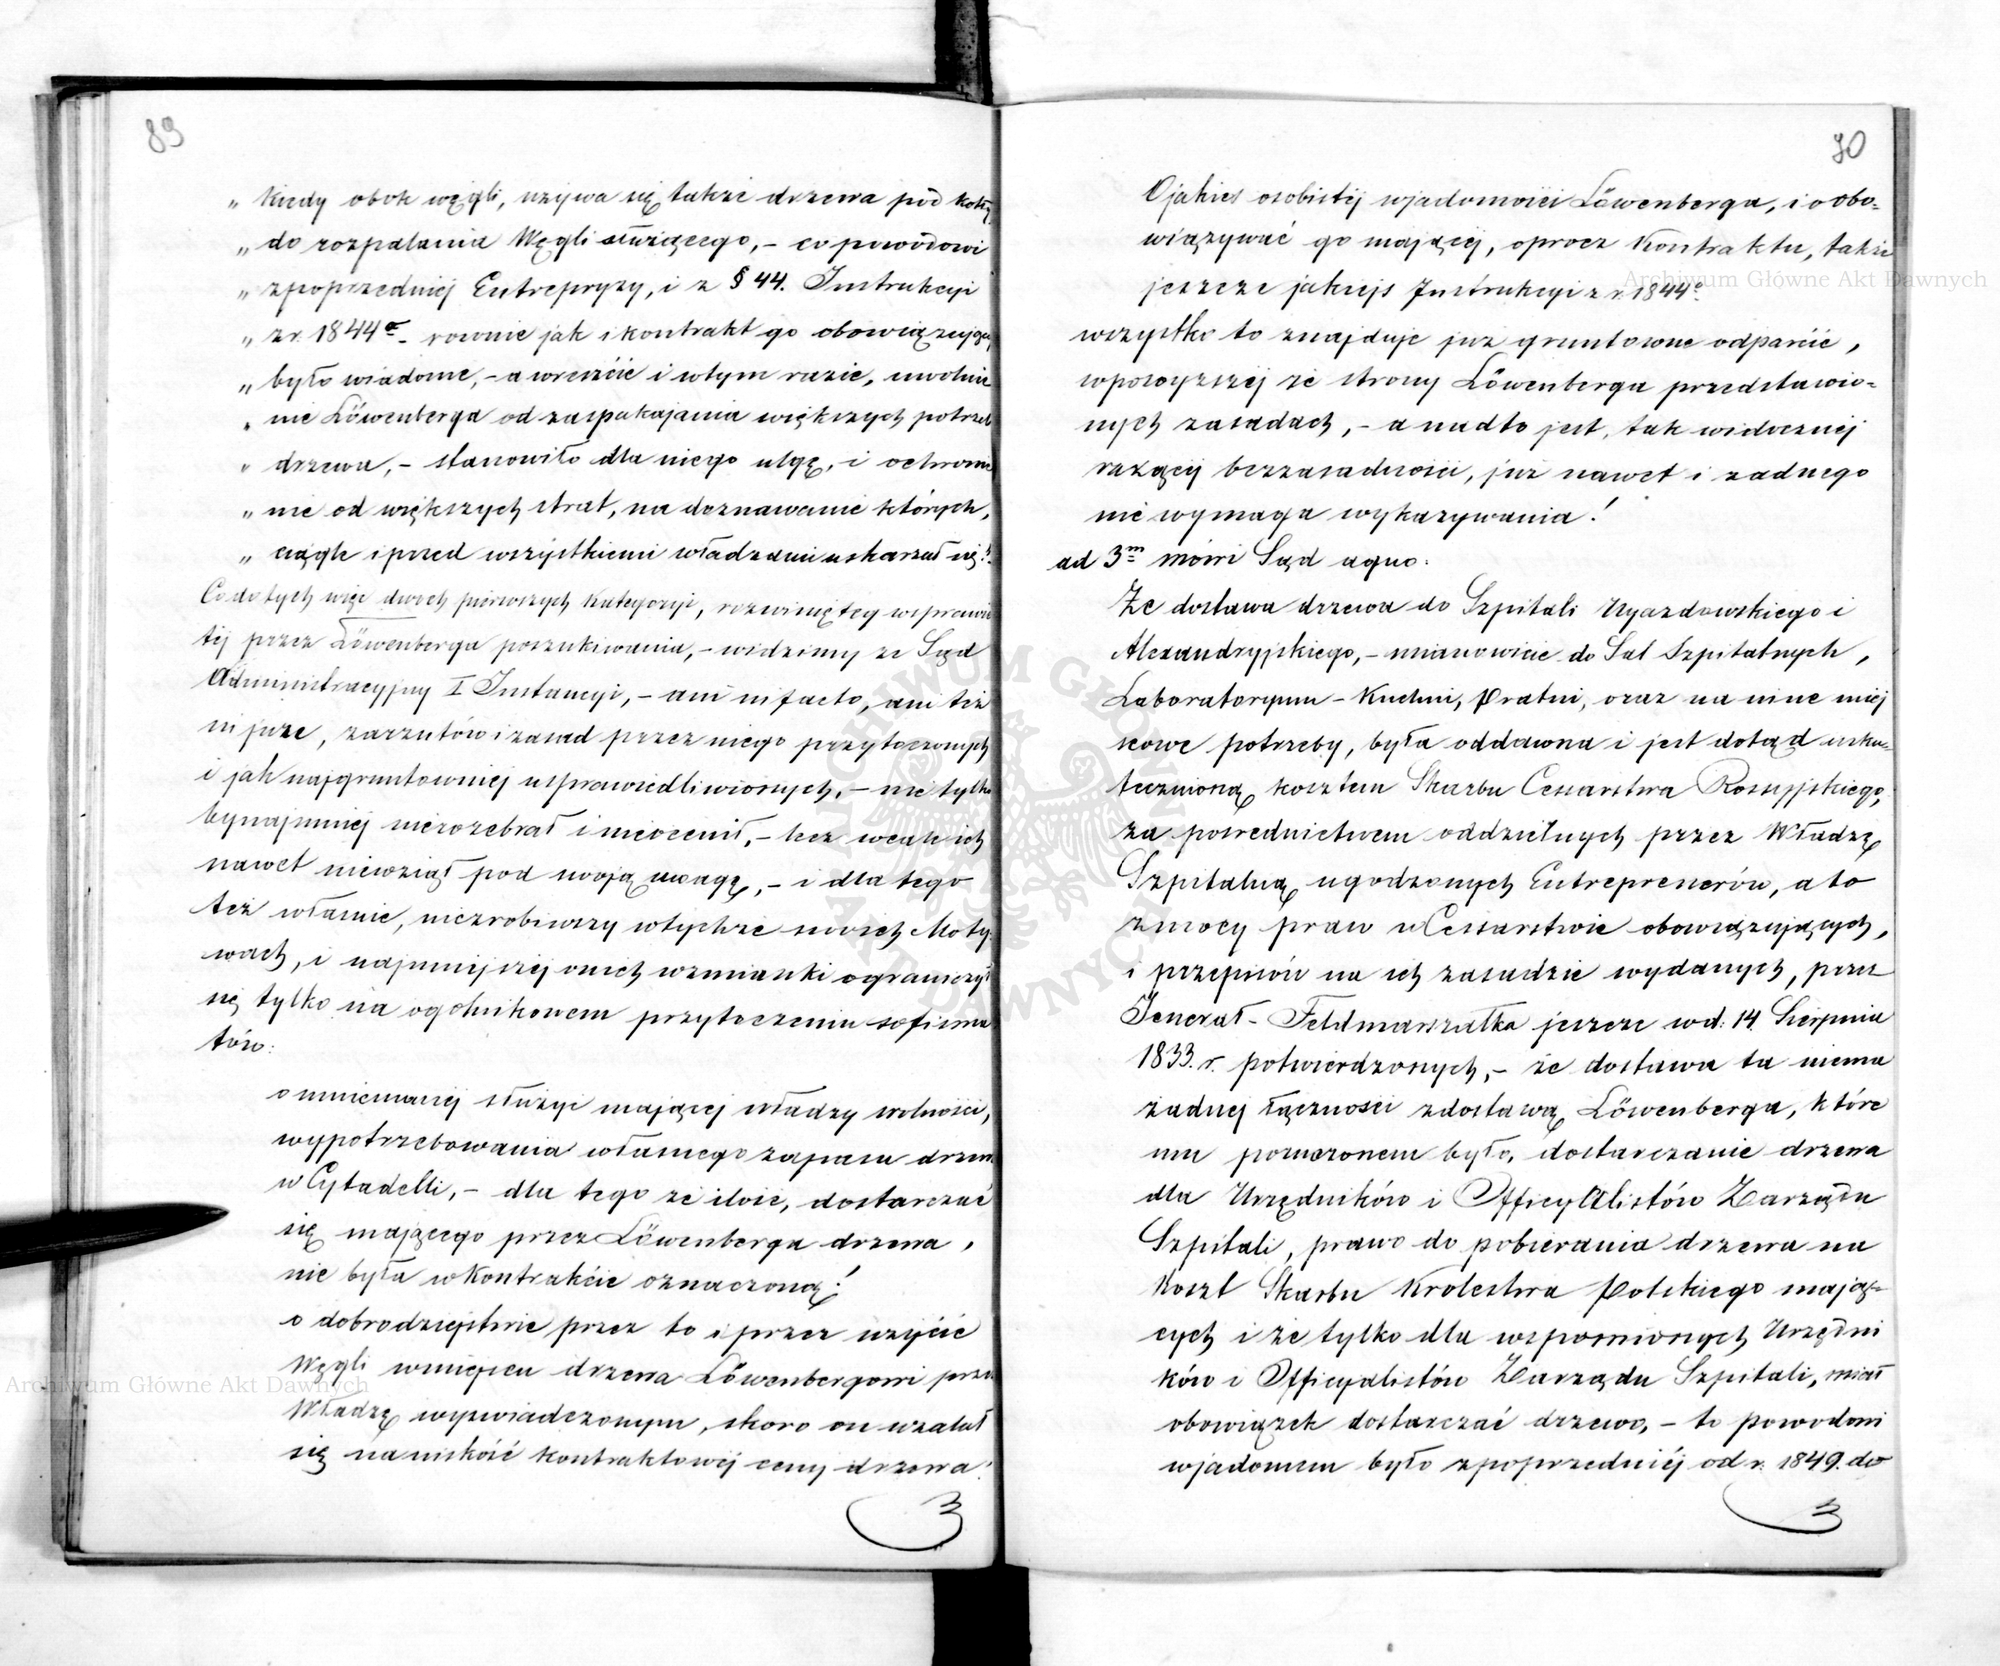 89
„ Kiedy obok węgli, używa się także drzewa pod kotły
„ do rozpalania Węgli służącego, – co powodowi
„ z poprzedniej Entrepryzy, i z § 44. Instrukcyi
„ z r. 1844 o rownie jak i kontrakt go obowiązując
„ było wiadome, – a wreszcie i w tym razie, uwolnie
„ nie Löwenberga od zaspakajania większych potrzeb
„ drzewa, – stanowiło dla niego ulgę, i ochronie
„ nie od większych strat, na doznawanie których,
„ ciągle i przed wszystkiemi władzami uskarzał się!"
Co do tych więc dwoch pierwszych Kategoryi, rozwiniętey w sprawie
téj przez Löwenberga poszukiwania, – widzimy że Sąd
Administracyjny I Instancyi, – ani in facto, ani też
in jure, zarzutów i zasad przez niego przytoczonych
i jak najgruntowniej usprawiedliwionych, – nie tylko
bynajmniej nierozebrał i nieocenił, – lecz wcale ich
nawet niewziął pod swoją uwagę, – i dla tego
też właśnie, niezrobiwszy w tychże swoich Moty
wach, i najmniejszéj o nich wzmianki ograniczył
się tylko na ogolnikowem przytoczeniu sofizma
tów:
o mniemanéj służyć mającéj władzy wolności,
wypotrzebowania własnego zapasu drzewa
w Cytadelli, – dla tego że ilość, dostarczać
się mającego przez Löwenberga drzewa,
nie była w Kontrakcie oznaczoną!
o dobrodziejstwie przez to i przez użycie
Węgli w miejscu drzewa Löwenbergowi przez
Władzę wyświadczonym, skoro on użalał
się na niskość kontraktowéj ceny drzewa!
3
90
O jakies osobistéj wjadomości Löwenberga, i o obo-
wiązywać go mającéj, oprocz Kontraktu, także
jeszcze jakiejs Instrukcyi z r. 1844 o
wszystko to znajduje juz gruntowne odparcie,
w powyzszéj ze strony Löwenberga przedstawio-
nych zasadach, – a nadto jest, tak widocznéj
rażącéj bezzasadności, już nawet i żadnego
nie wymaga wykazywania!
ad 3m mówi Sąd aquo:
Że dostawa drzewa do Szpitali Ujazdowskiego i
Alexandryjskiego, – mianowicie do Sal Szpitalnych,
Laboratoryum – Kuchni, Pralni, oraz na inne miej
scowe potrzeby, była oddawna i jest dotąd usku-
teczniona kosztem Skarbu Cesarstwa Rossyjskiego,
za posrednictwem oddzielnych przez Władzę
Szpitalną ugodzonych Entreprenerów, a to
z mocy praw w Cesarstwie obowiązujących,
i przepisów na ich zasadzie wydanych, przez
Jenerał – Feldmarszałka jeszcze w d: 14 Sierpnia
1833. r. potwierdzonych, – że dostawa ta niema
żadnej łączności z dostawą Löwenberga, które
mu poruczonem było, dostarczanie drzewa
dla Urzędników i Officyalistów Zarządu
Szpitali, prawo do pobierania drzewa na
Koszt Skarbu Krolestwa Polskiego mają-
cych i że tylko dla wspomionych Urzędni
ków i Officyalistów Zarządu Szpitali, miał
obowiązek dostarczać drzewo, – to powodowi
wjadomem było z poprzedniéj od r. 1849. do
3
Archiwum Główne Akt Dawnych
Archiwum Główne Akt Dawnych
ARCHIWUM GŁÓWNE AKT DAWNYCH